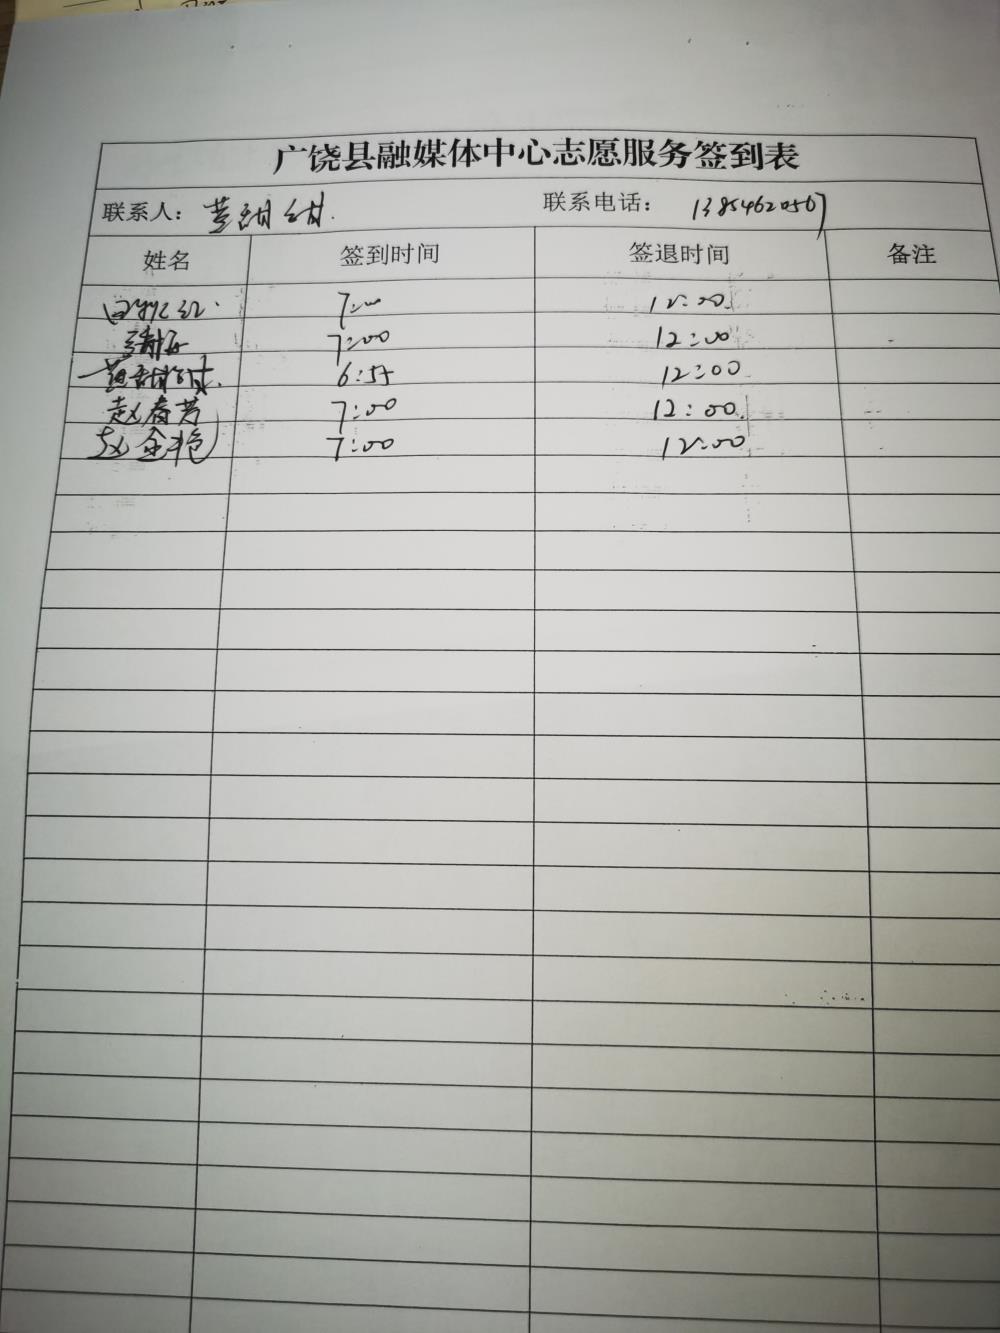 广饶县融媒体中心志愿服务签到表
联系人：黄甜甜. 联系电话：13854620567
姓名 签到时间 签退时间 备注
7:00 12:00.
7:00 12:00
黄甜甜. 6:55 12:00
赵春芳 7:00 12:00.
赵金艳 7:00 12:00